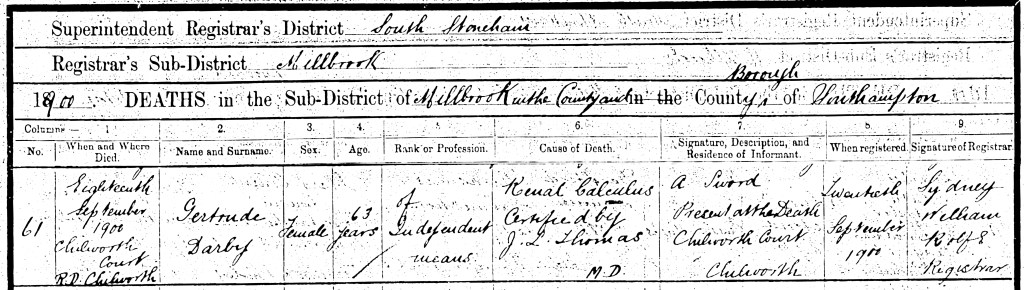 Superintendent Registrar's District South Stoneham
Registrar's Sub-District Millbrook
Borough
1900 DEATHS in the Sub-District of Millbrook in the County and in the Countys of Southampton
Columns:— 1. 2. 3. 4. 5. 6. 7. 8. 9
No. When and Where Died. Name and Surname. Sex. Age. Rank or Profession. Cause of Death. Signature, Description, and Residence of Informant. When registered. Signature of Registrar
61
Eighteenth
September
1900
Chilworth
Court
R.D. Chilworth
Gertrude
Darby
Female
63
years
Of
Independent
means
Renal Calculus
Certified by
J. L. Thomas
M.D.
A Sword
Present at the Death
Chilworth Court
Chilworth
Twentieth
September
1900
Sydney
William
Rolfe
Registrar